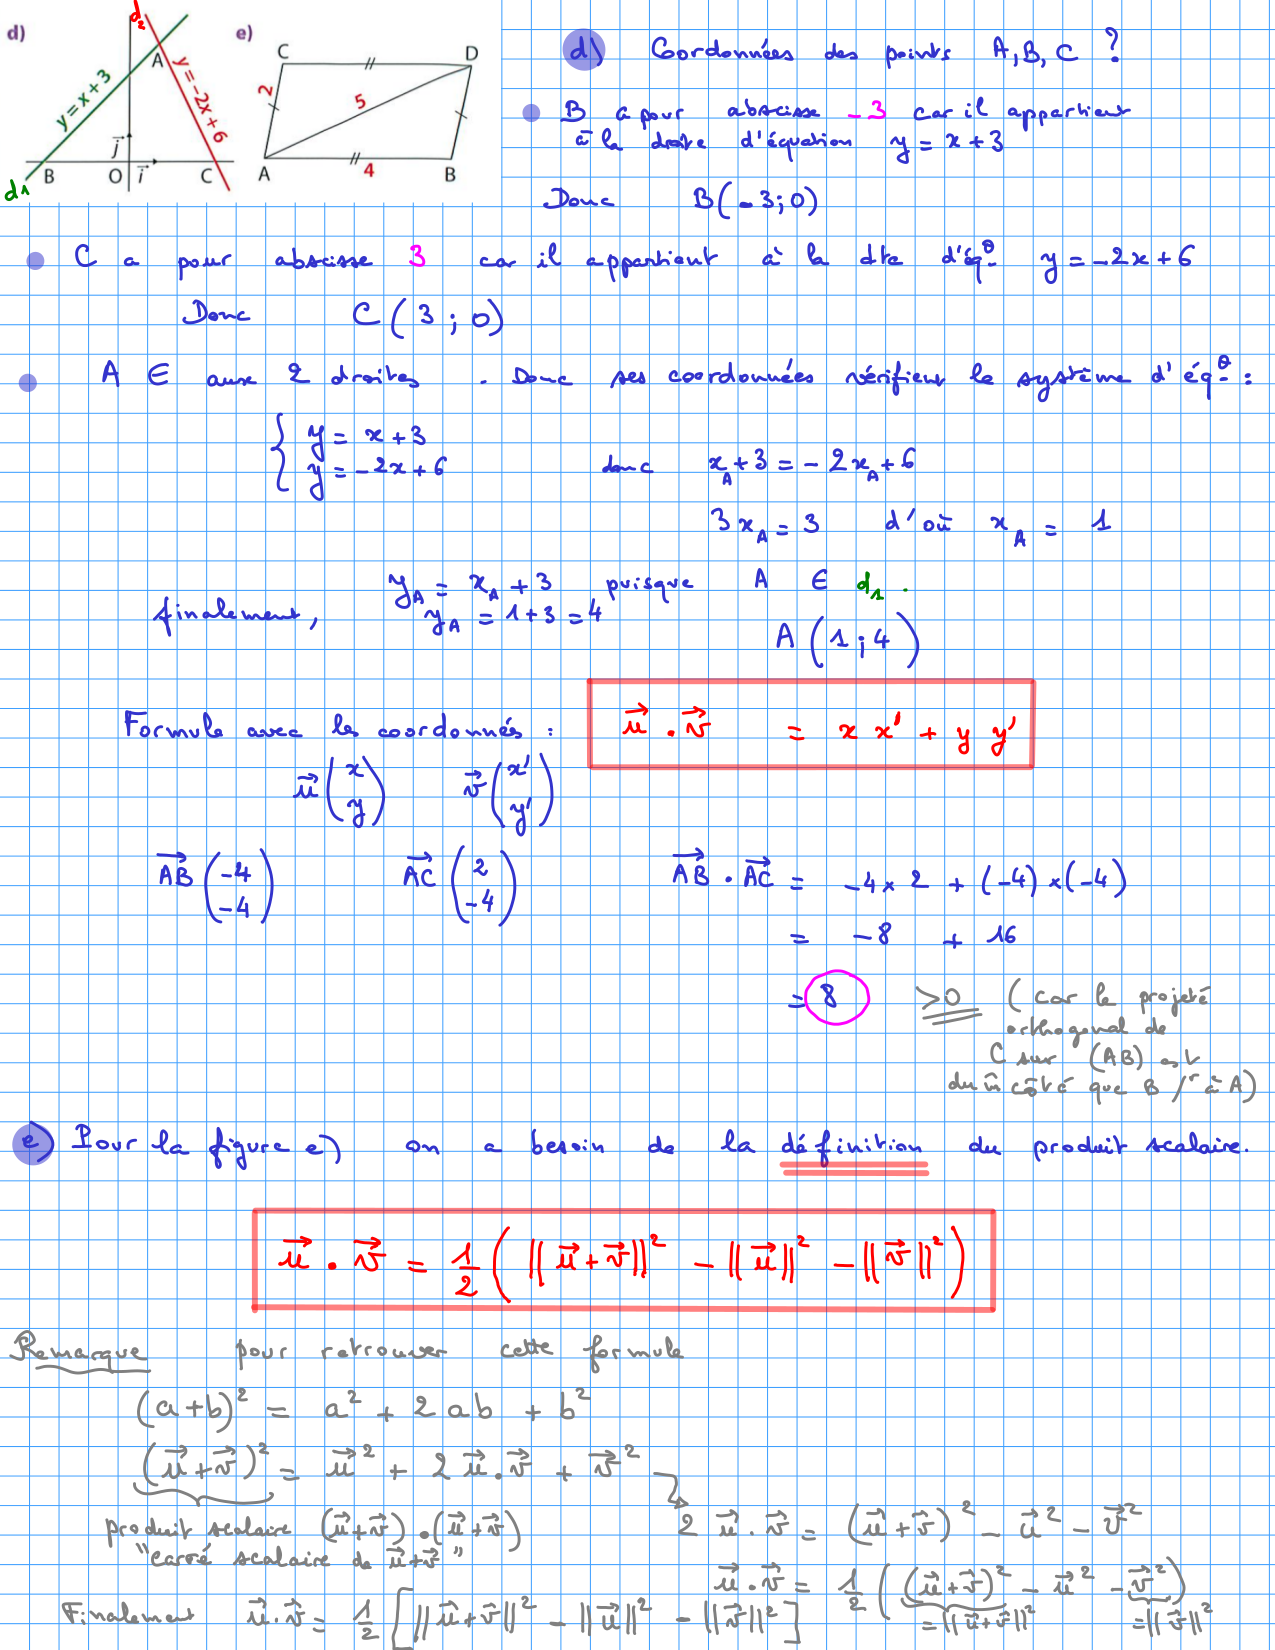 d) d₂ A y = x + 3 y = -2x + 6 j⃗ B O i⃗ C d₁
e) C D 2 5 A 4 B
d) Coordonnées des points A, B, C ?
B a pour abscisse -3 car il appartient
à la droite d'équation y = x + 3
Donc B(-3; 0)
C a pour abscisse 3 car il appartient à la dte d'éqº y = -2x + 6
Donc C(3 ; 0)
A ∈ aux 2 droites . Donc ses coordonnées vérifient le système d'éqº :
{ y = x + 3
{ y = -2x + 6 donc x_A + 3 = -2x_A + 6
3x_A = 3 d'où x_A = 1
finalement, y_A = x_A + 3 puisque A ∈ d₁ .
y_A = 1 + 3 = 4
A(1 ; 4)
Formule avec les coordonnées : u⃗ . v⃗ = x x' + y y'
u⃗ (x y) v⃗ (x' y')
AB⃗ (-4 -4) AC⃗ (2 -4) AB⃗ . AC⃗ = -4 × 2 + (-4) × (-4)
= -8 + 16
= 8 >0 (car le projeté
orthogonal de
C sur (AB) est
du m̂ côté que B /r à A)
e) Pour la figure e) on a besoin de la définition du produit scalaire.
u⃗ . v⃗ = 1/2 ( ||u⃗ + v⃗||² - ||u⃗||² - ||v⃗||² )
Remarque pour retrouver cette formule
(a+b)² = a² + 2ab + b²
(u⃗ + v⃗)² = u⃗² + 2 u⃗ . v⃗ + v⃗²
produit scalaire (u⃗ + v⃗) . (u⃗ + v⃗)
"carré scalaire de u⃗ + v⃗"
2 u⃗ . v⃗ = (u⃗ + v⃗)² - u⃗² - v⃗²
u⃗ . v⃗ = 1/2 ( (u⃗ + v⃗)² - u⃗² - v⃗² )
= ||u⃗ + v⃗||² = ||v⃗||²
Finalement u⃗ . v⃗ = 1/2 [ ||u⃗ + v⃗||² - ||u⃗||² - ||v⃗||² ]